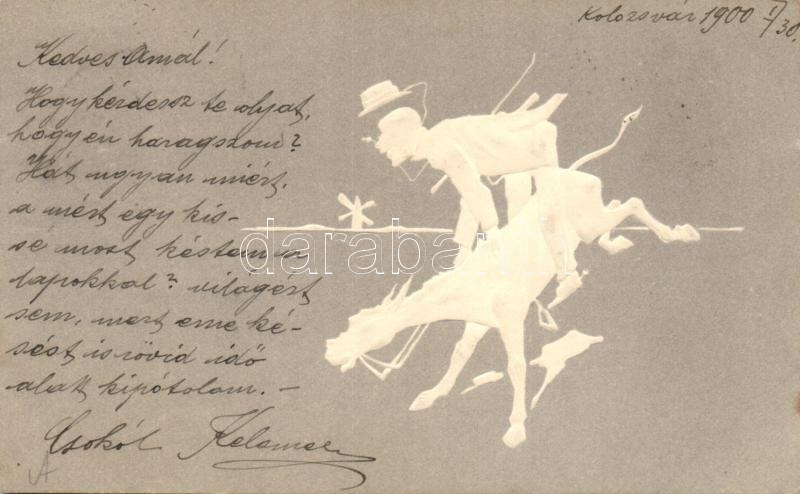 Kolozsvár 1900 I/30.
Kedves Amál!
Hogy kérdesz te olyat,
hogy én haragszom?
Hát ugyan miért,
a mért egy kis-
se most késtem a
lapokkal? világért
sem, mert eme ké-
sést is rövid idő
alatt kipótolom. –
Csókol Kelemen
darabanth.com